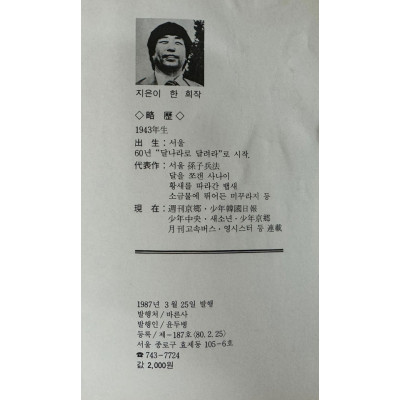 지은이 한 희작
◇略 歷◇
1943年生
出 生 : 서울
60년 “달나라로 달려라”로 시작.
代表作 : 서울 孫子兵法
달을 쪼갠 사나이
황새를 따라간 뱁새
소금물에 뛰어든 미꾸라지 등
現 在 : 週刊京鄕·少年韓國日報
少年中央·새소년·少年京鄕
月刊고속버스·영시스터 등 連載
1987년 3월 25일 발행
발행처/바른사
발행인/윤두병
등록/제-187호(80.2.25)
서울 종로구 효제동 105-6호
☎743-7724
값 2,000원